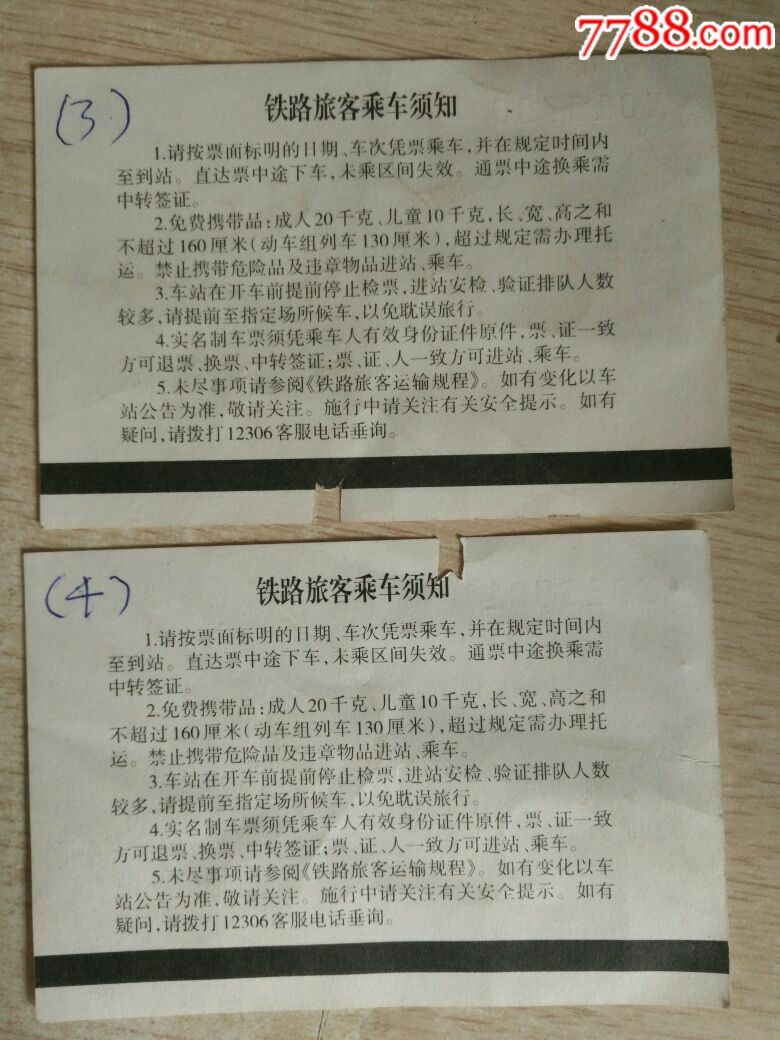 7788.com
(3)
铁路旅客乘车须知
1.请按票面标明的日期、车次凭票乘车,并在规定时间内
至到站。直达票中途下车,未乘区间失效。通票中途换乘需
中转签证。
2.免费携带品:成人20千克、儿童10千克,长、宽、高之和
不超过160厘米(动车组列车130厘米),超过规定需办理托
运。禁止携带危险品及违章物品进站、乘车。
3.车站在开车前提前停止检票,进站安检、验证排队人数
较多,请提前至指定场所候车,以免耽误旅行。
4.实名制车票须凭乘车人有效身份证件原件,票、证一致
方可退票、换票、中转签证;票、证、人一致方可进站、乘车。
5.未尽事项请参阅《铁路旅客运输规程》。如有变化以车
站公告为准,敬请关注。施行中请关注有关安全提示。如有
疑问,请拨打12306客服电话垂询。
(4)
铁路旅客乘车须知
1.请按票面标明的日期、车次凭票乘车,并在规定时间内
至到站。直达票中途下车,未乘区间失效。通票中途换乘需
中转签证。
2.免费携带品:成人20千克、儿童10千克,长、宽、高之和
不超过160厘米(动车组列车130厘米),超过规定需办理托
运。禁止携带危险品及违章物品进站、乘车。
3.车站在开车前提前停止检票,进站安检、验证排队人数
较多,请提前至指定场所候车,以免耽误旅行。
4.实名制车票须凭乘车人有效身份证件原件,票、证一致
方可退票、换票、中转签证;票、证、人一致方可进站、乘车。
5.未尽事项请参阅《铁路旅客运输规程》。如有变化以车
站公告为准,敬请关注。施行中请关注有关安全提示。如有
疑问,请拨打12306客服电话垂询。